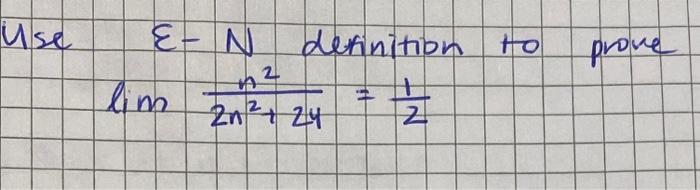 Use ε- N definition to prove
lim n²/(2n²+ 24) = 1/2